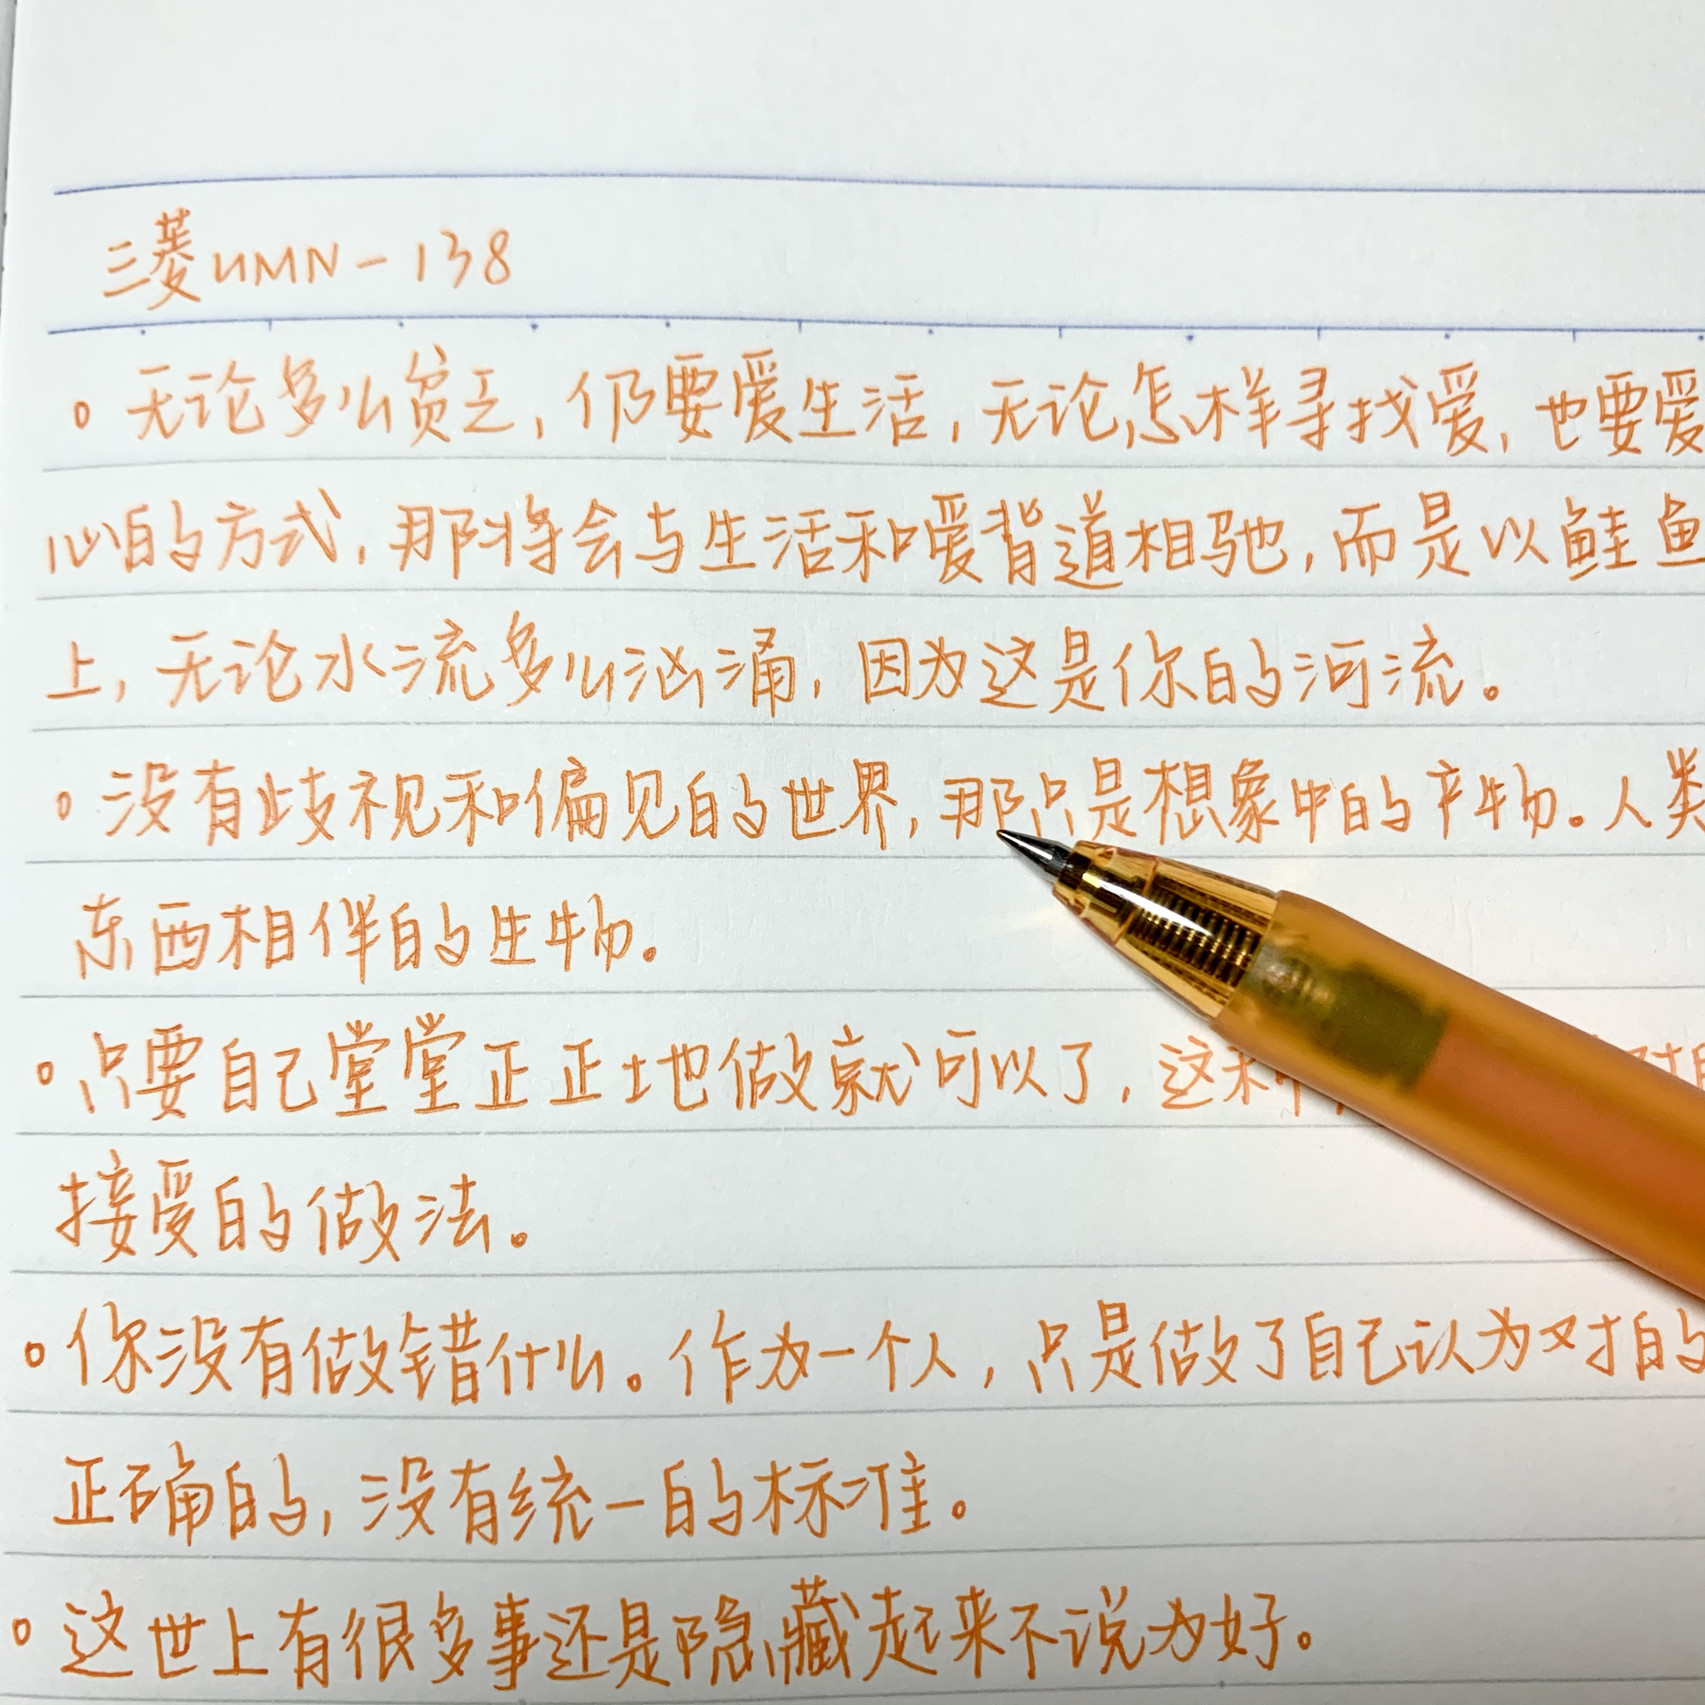 三菱UMN-138
。无论多么贫乏，仍要爱生活，无论怎样寻找爱，也要爱
心的方式，那将会与生活和爱背道相驰，而是以鲑鱼
上，无论水流多么汹涌，因为这是你的河流。
。没有歧视和偏见的世界，那只是想象中的产物。人类
东西相伴的生物。
。只要自己堂堂正正地做就可以了，这种
接受的做法。
。你没有做错什么。作为一个人，只是做了自己认为对的
正确的，没有统一的标准。
。这世上有很多事还是隐藏起来不说为好。